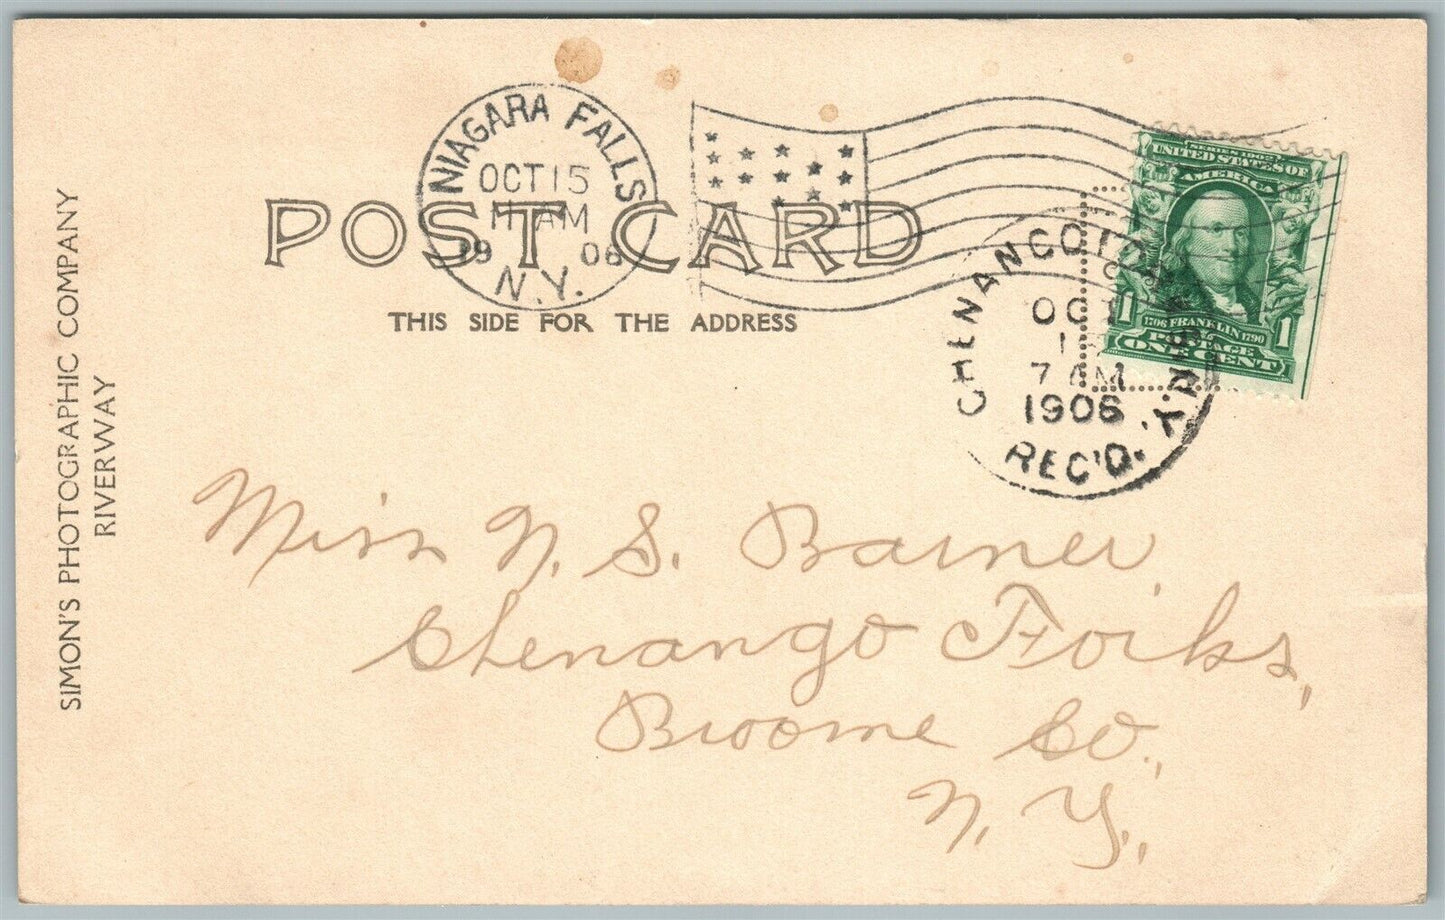 NIAGARA FALLS
OCT 15
11 AM
1906
N.Y.
POST CARD
THIS SIDE FOR THE ADDRESS
SERIES 1902
UNITED STATES OF
AMERICA
1 1
1706 FRANKLIN 1790
POSTAGE
ONE CENT
CHENANGO
OCT
7 AM
1906
N.Y.
REC'D.
SIMON'S PHOTOGRAPHIC COMPANY
RIVERWAY
Miss N. S. Barner,
Chenango Forks,
Broome Co.,
N. Y.,